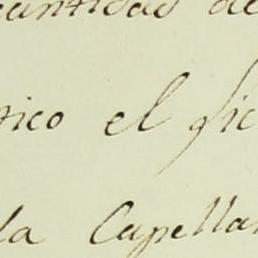 cantidad de
tico el fic
la Capellan